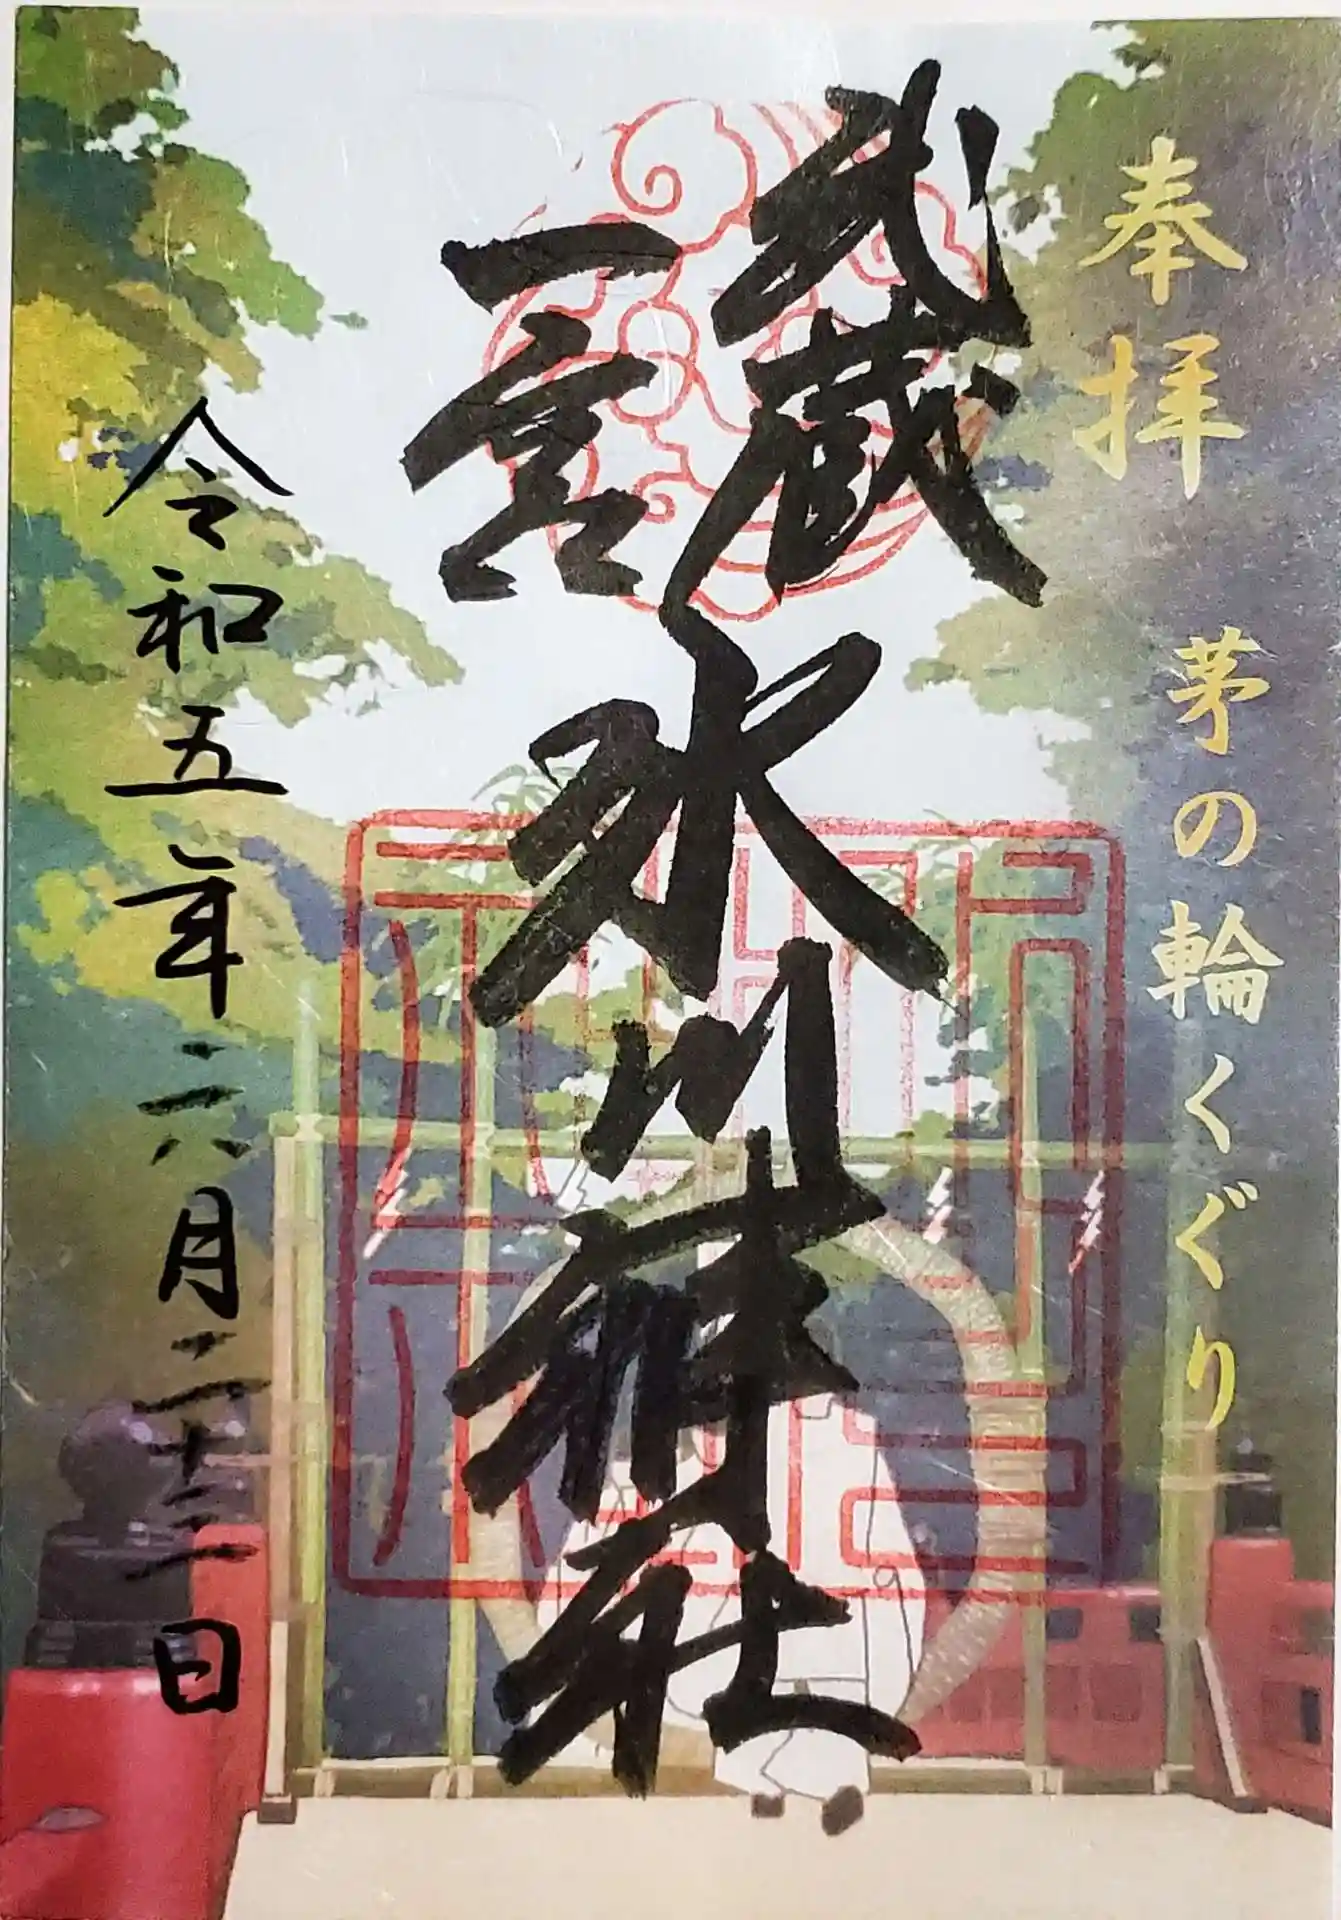 奉拝
茅の輪くぐり
武蔵
一宮
氷川神社
令和五年六月二十三日